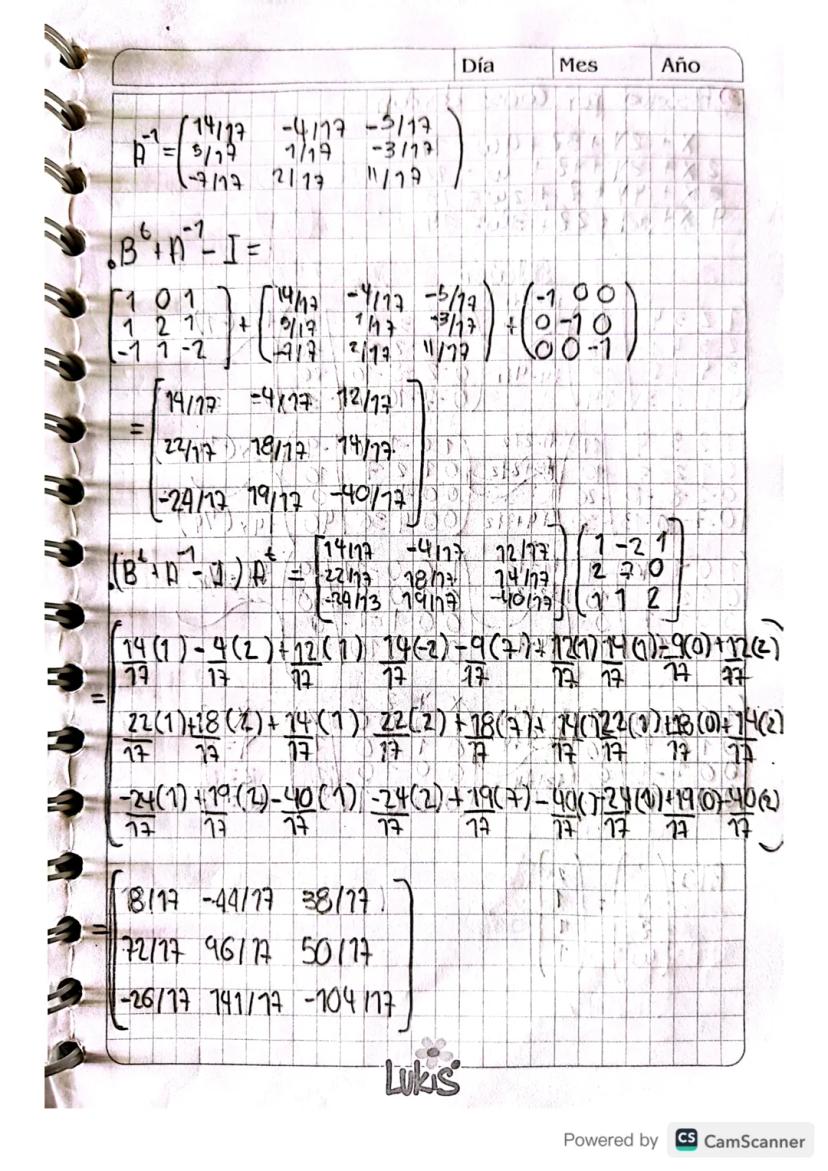 Día Mes Año
A⁻¹ = (14/17 -4/17 -5/17
5/17 1/17 -3/17
-7/17 2/17 11/17)
.Bᵗ + A⁻¹ - I =
[1 0 1 ] + [14/17 -4/17 -5/17) + (-1 0 0
1 2 1 5/17 1/17 -3/17 0 -1 0
-1 1 -2 -7/7 2/17 11/17 0 0 -1)
= [14/17 -4/17 12/17
22/17 18/17 14/17
-24/17 19/17 -40/17]
.(Bᵗ + A⁻¹ - I) Aᵗ = [14/17 -4/17 12/17] (1 -2 1
22/17 18/17 14/17 2 7 0
-24/13 19/17 -40/17 1 1 2]
= (14/17 (1) - 4/17 (2) + 12/17 (1) 14/17 (-2) - 9/17 (7) + 12/17 (1) 14/17 (1) - 9/17 (0) + 12/17 (2)
22/17 (1) + 18/17 (2) + 14/17 (1) 22/17 (2) + 18/17 (7) + 14/17 ( 22/17 (1) + 18/17 (0) + 14/17 (2)
-24/17 (1) + 19/17 (2) - 40/17 (1) -24/17 (2) + 19/17 (7) - 40/17 ( -24/17 (1) + 19/17 (0) - 40/17 (2))
= [18/17 -44/17 38/17
72/17 96/17 50/17
-26/17 141/17 -104/17]
Lukis
Powered by CS CamScanner